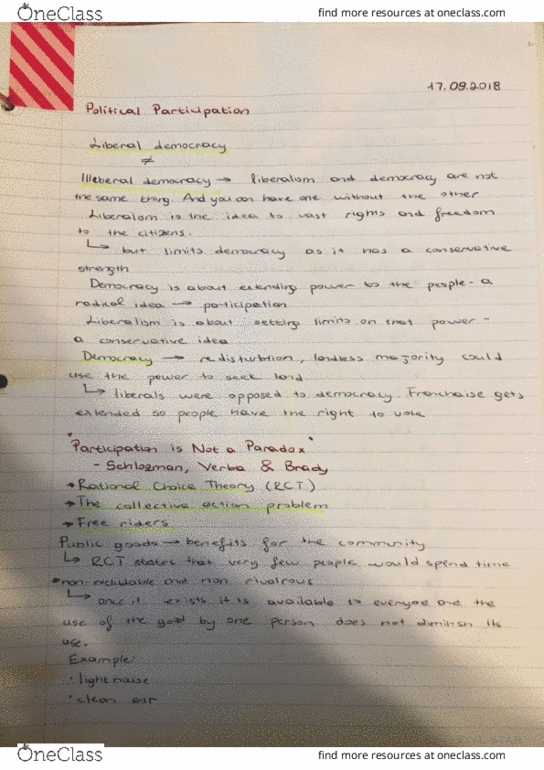 OneClass
find more resources at oneclass.com
17.09.2018
Political Participation
Liberal democracy
≠
Illeberal democracy → liberalism and democracy are not
the same thing. And you can have one without the other
Liberalism is the idea to vast rights and freedom
to the citizens.
↳ but limits democracy as it has a conservative
strength
Democracy is about extending power to the people - a
radical idea → participation
Liberalism is about setting limits on that power -
a conservative idea
Democracy → redisturbtion, landless majority could
use the power to seek land
↳ liberals were opposed to democracy. Franchaise gets
extended so people have the right to vote
"Participation is Not a Paradox"
- Schlozman, Verba & Brady
→ Rational Choice Theory (RCT)
→ The collective action problem
→ Free riders
Public goods → benefits for the community
↳ RCT states that very few people would spend time
non-excludable and non rivalrous
↳ once it exists it is available to everyone and the
use of the good by one person does not diminsh its
use.
Example:
· light house
· clean air
OneClass
find more resources at oneclass.com